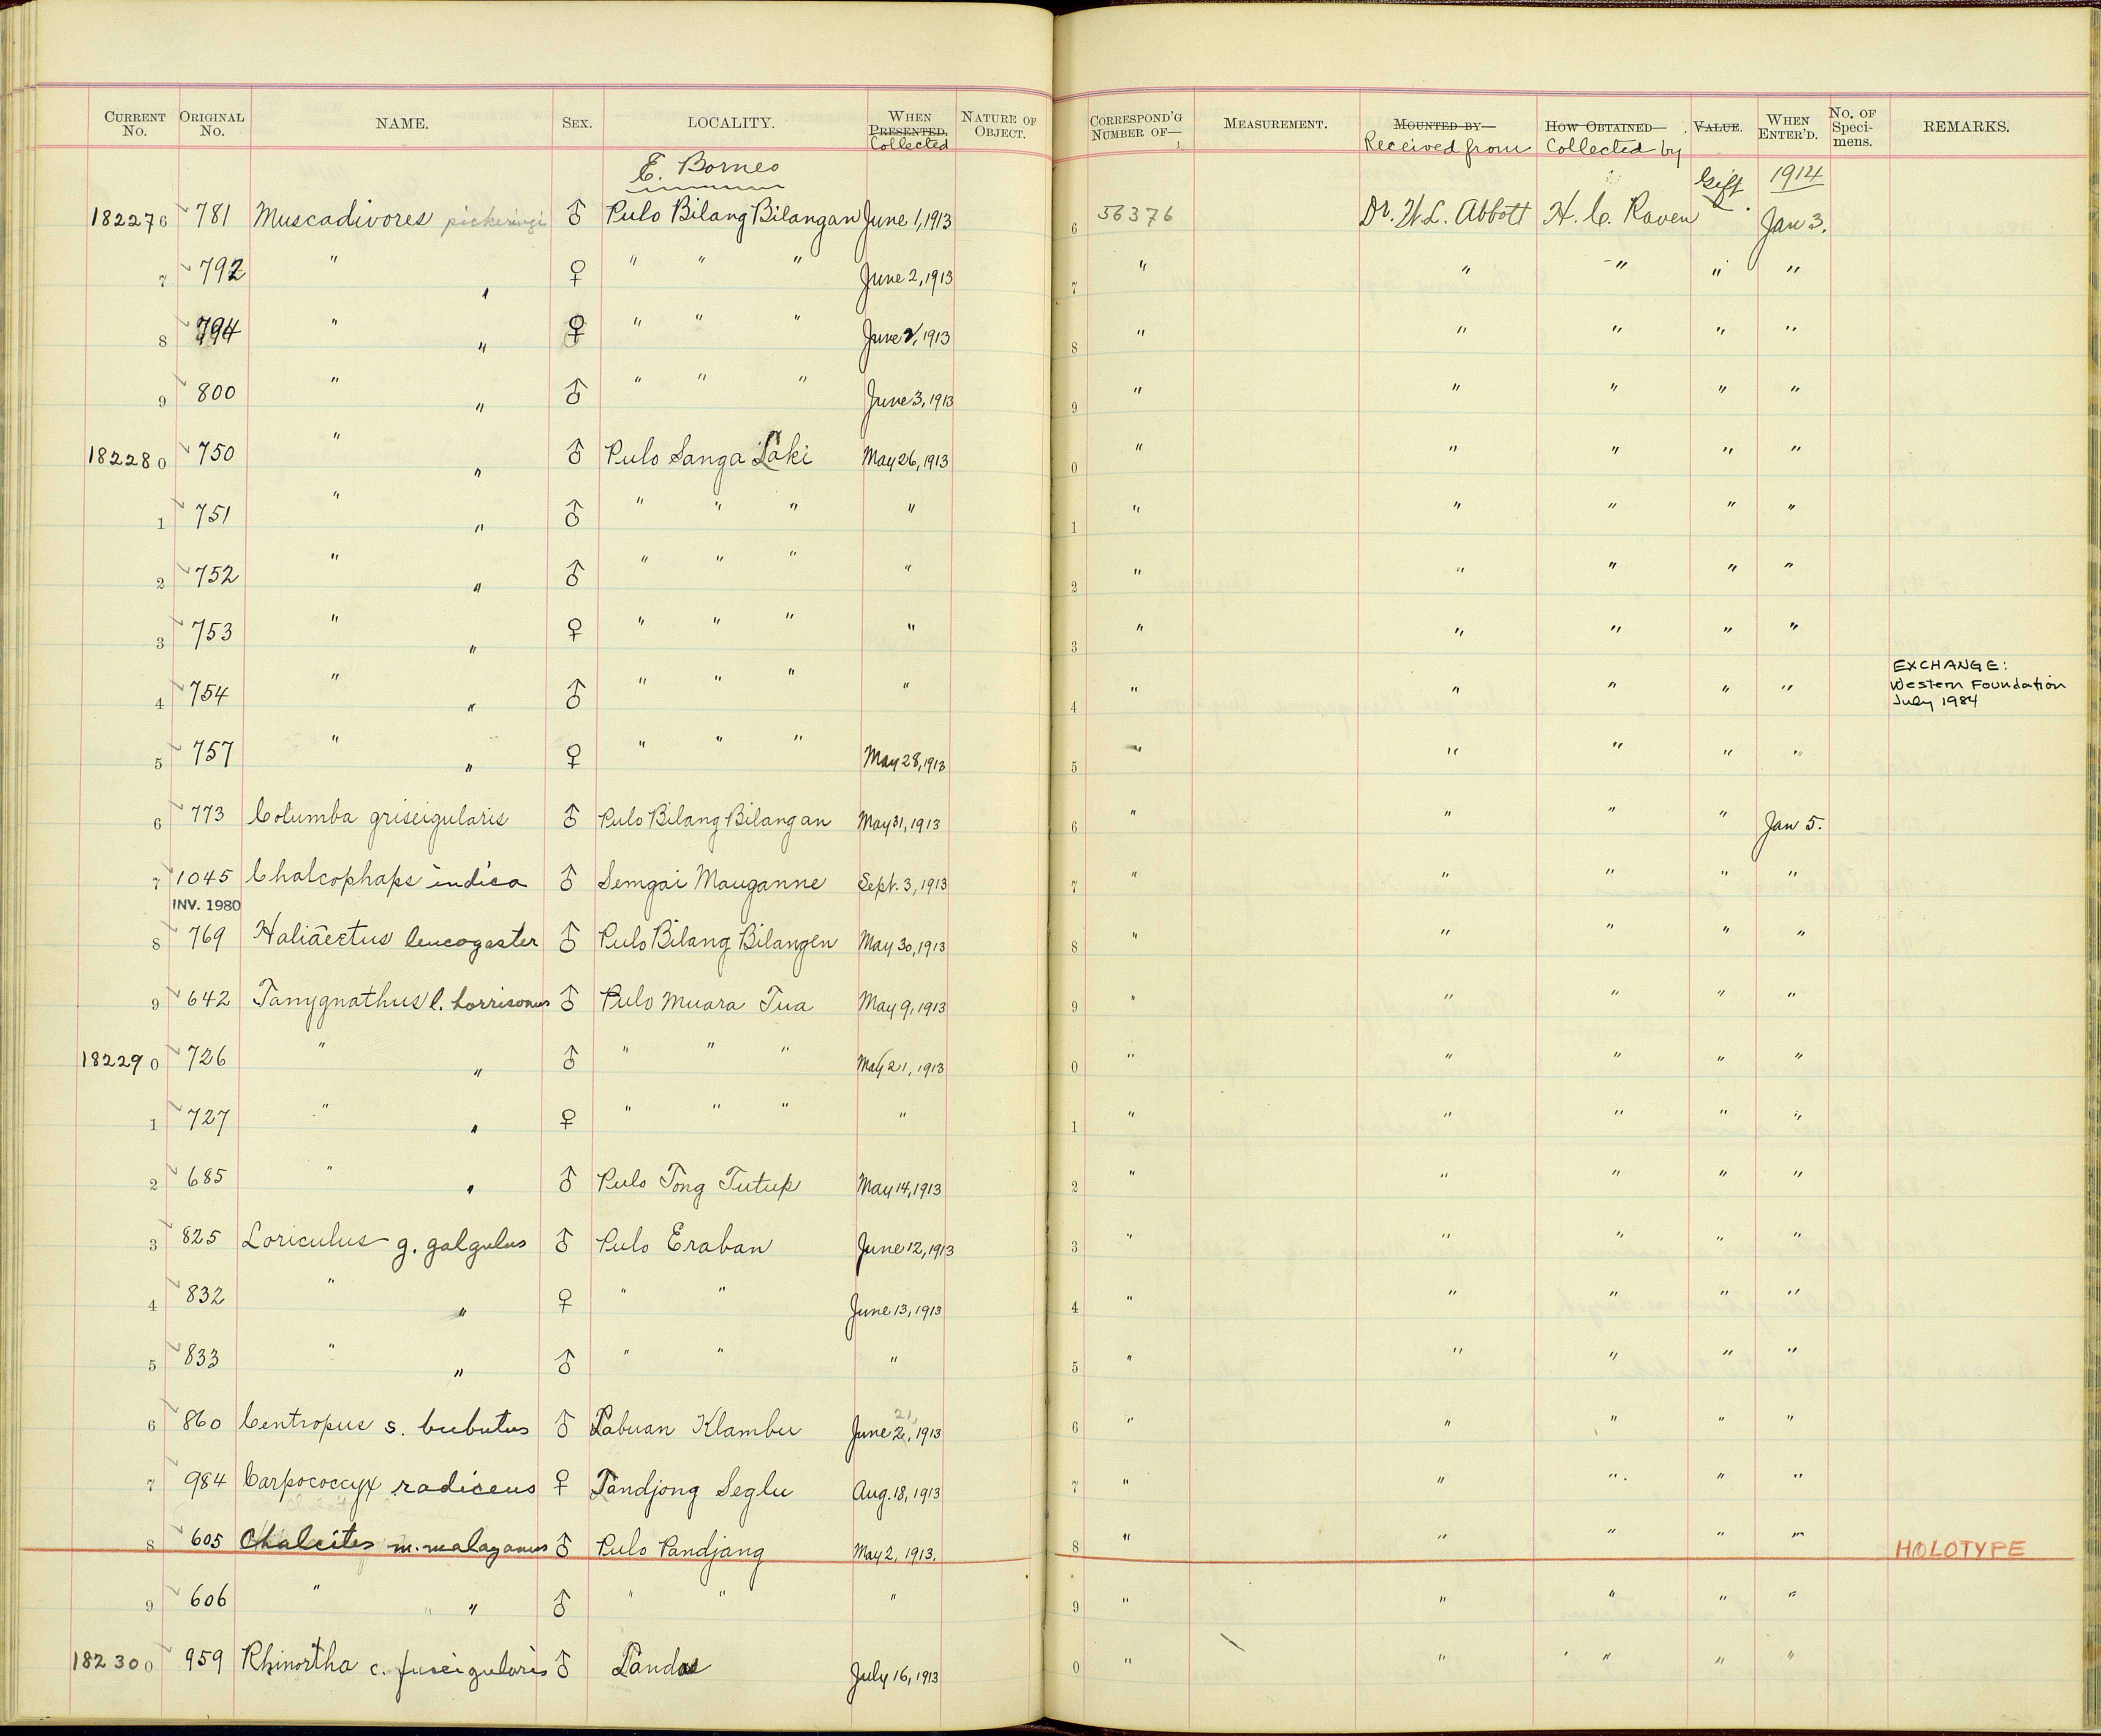 CURRENT No. ORIGINAL No. NAME. SEX. LOCALITY. WHEN PRESENTED. Collected NATURE OF OBJECT. CORRESPOND'G NUMBER OF— MEASUREMENT. MOUNTED BY— Received from HOW OBTAINED— Collected by VALUE. WHEN ENTER'D. No. OF Speci-mens. REMARKS.
E. Borneo Gift 1914
182276 781 Muscadivores pickeringi ♂ Pulo Bilang Bilangan June 1, 1913 6 56376 Dr. W. L. Abbott H. C. Raven Jan 3.
7 792 " " ♀ " " " June 2, 1913 7 " " " " "
8 794 " " ♀ " " " June 2, 1913 8 " " " " "
9 800 " " ♂ " " " June 3, 1913 9 " " " " "
182280 750 " " ♂ Pulo Sanga Laki May 26, 1913 0 " " " " "
1 751 " " ♂ " " " " 1 " " " " "
2 752 " " ♂ " " " " 2 " " " " "
3 753 " " ♀ " " " " 3 " " " " "
4 754 " " ♂ " " " " 4 " " " " " EXCHANGE:
Western Foundation
July 1984
5 757 " " ♀ " " " May 28, 1913 5 " " " " "
6 773 Columba griseigularis ♂ Pulo Bilang Bilangan May 31, 1913 6 " " " " Jan 5.
7 1045 Chalcophaps indica ♂ Semgai Mauganne Sept. 3, 1913 7 " " " " "
INV. 1980
8 769 Haliäetus leucogaster ♂ Pulo Bilang Bilangen May 30, 1913 8 " " " " "
9 642 Tanygnathus l. horrisonus ♂ Pulo Muara Tua May 9, 1913 9 " " " " "
182290 726 " " ♂ " " " May 21, 1913 0 " " " " "
1 727 " " ♀ " " " " 1 " " " " "
2 685 " " ♂ Pulo Tong Tutup May 14, 1913 2 " " " " "
3 825 Loriculus g. galgulus ♂ Pulo Eraban June 12, 1913 3 " " " " "
4 832 " " ♀ " " June 13, 1913 4 " " " " "
5 833 " " ♂ " " " 5 " " " " "
6 860 Centropus s. bubutus ♂ Labuan Klambu June 21, 1913 6 " " " " "
7 984 Carpococcyx radiceus ♀ Tandjong Seglu Aug. 18, 1913 7 " " " " "
8 605 Chalcites m. malayanus ♂ Pulo Pandjang May 2, 1913. 8 " " " " " HOLOTYPE
9 606 " " ♂ " " " 9 " " " " "
182300 959 Rhinortha c. fuscigularis ♂ July 16, 1913 0 " " " " "